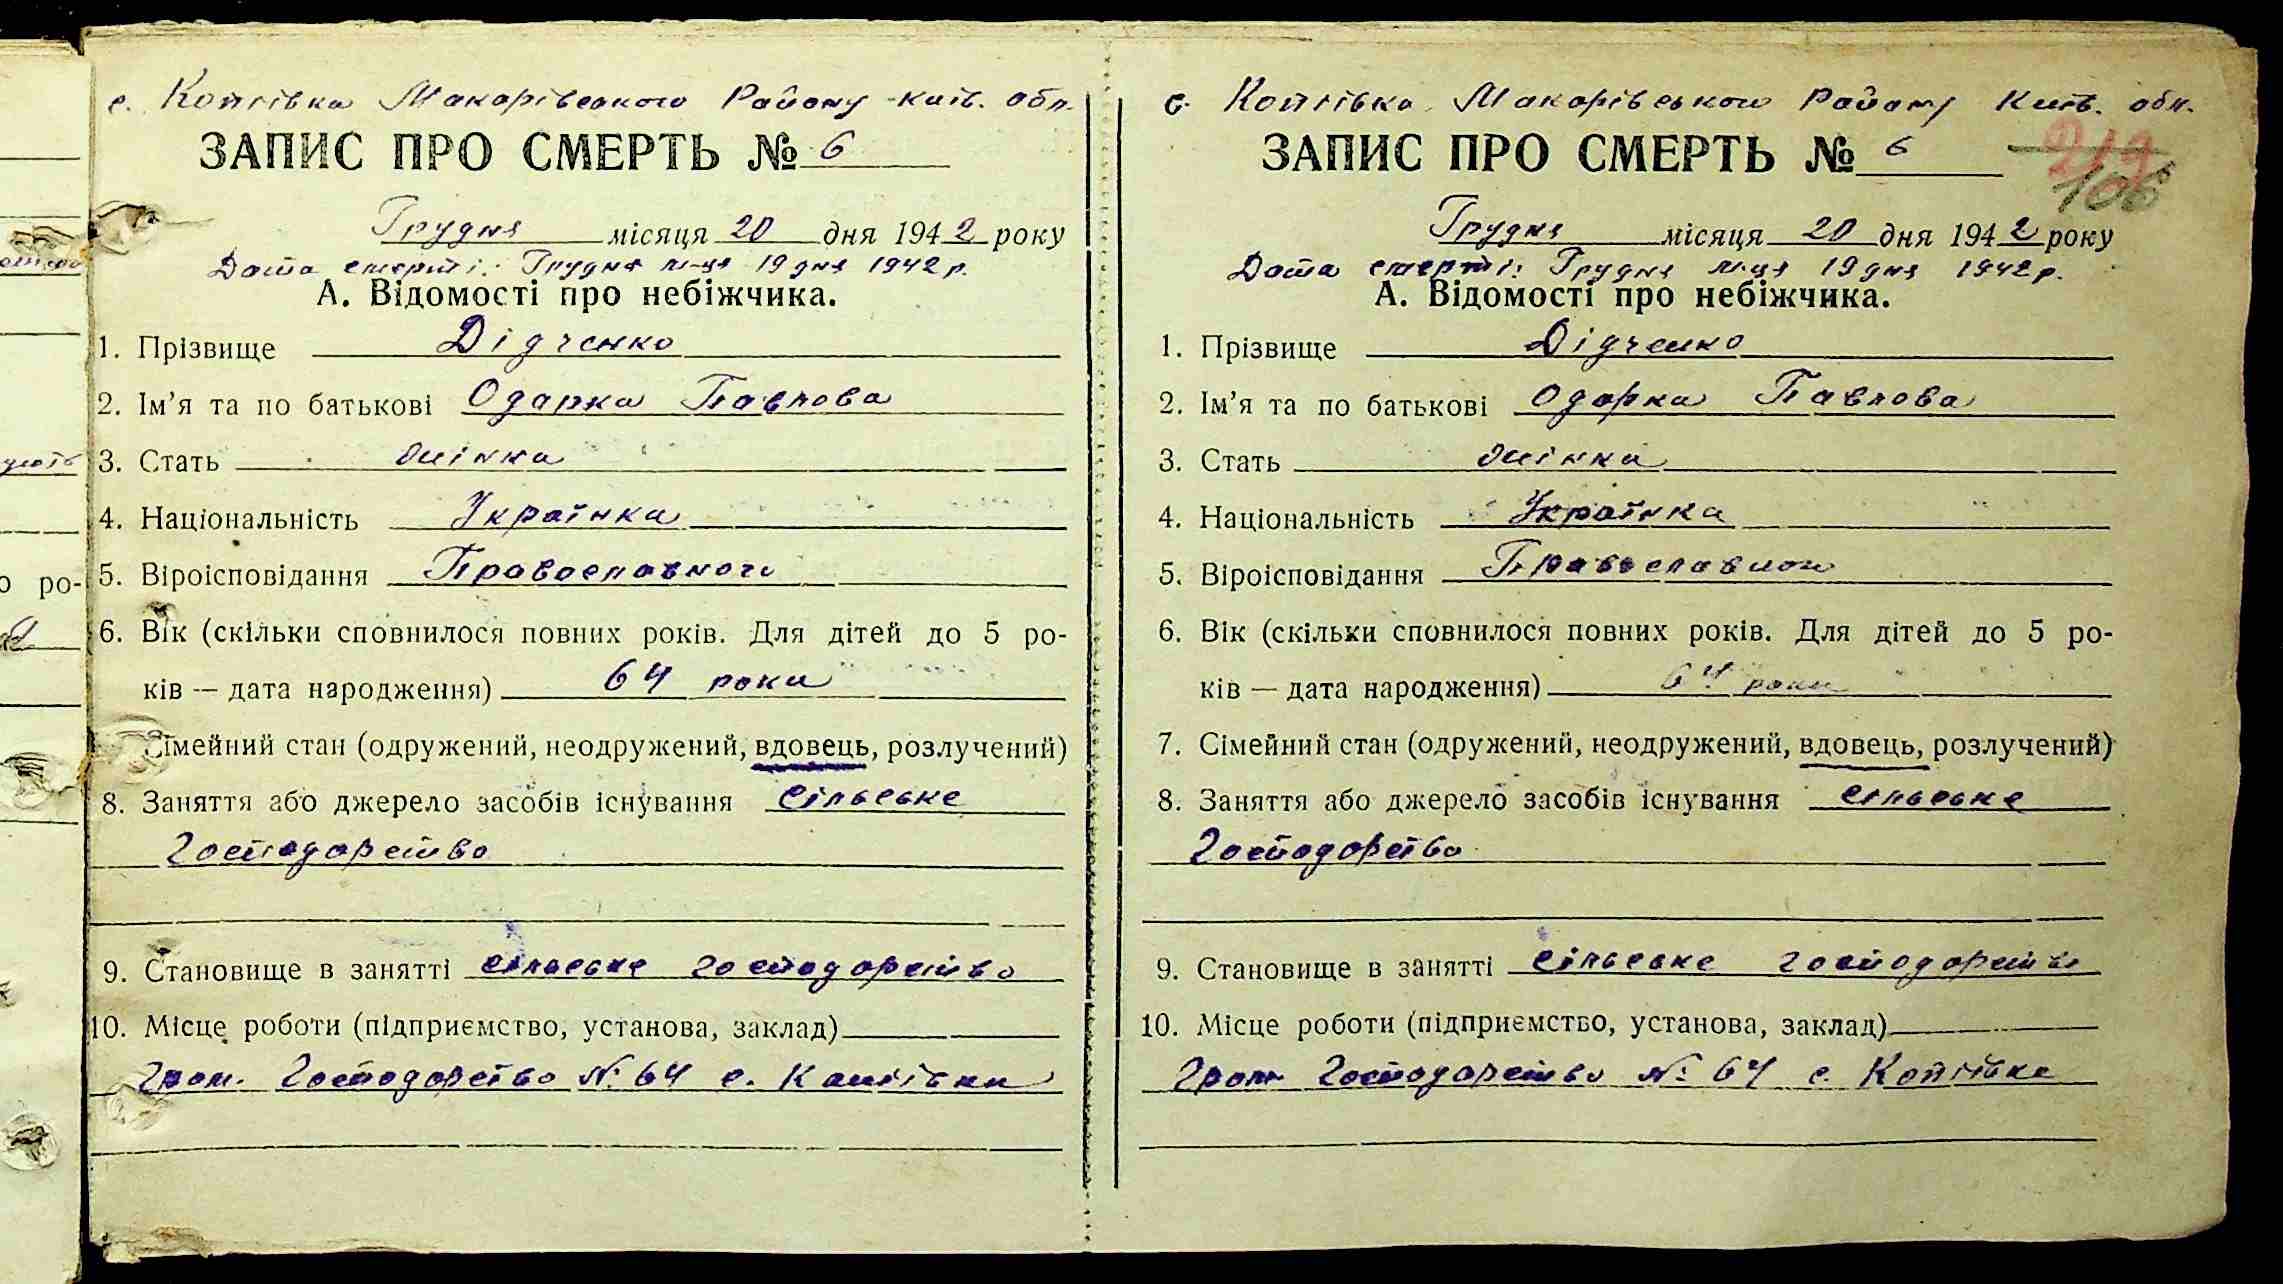 с. Копіївка Макарівського Району Київ. обл.
ЗАПИС ПРО СМЕРТЬ № 6
Грудня місяця 20 дня 1942 року
Дата смерті: Грудня м-ця 19 дня 1942 р.
А. Відомості про небіжчика.
1. Прізвище Дідченко
2. Ім'я та по батькові Одарка Павлова
3. Стать жінка
4. Національність Українка
5. Віроісповідання Православного
6. Вік (скільки сповнилося повних років. Для дітей до 5 ро-
ків — дата народження) 64 роки
Сімейний стан (одружений, неодружений, вдовець, розлучений)
8. Заняття або джерело засобів існування сільське
господарство
9. Становище в занятті сільське господарство
10. Місце роботи (підприємство, установа, заклад)
Гром. Господарство № 64 с. Копіївки
с. Копіївка Макарівського Району Київ. обл.
ЗАПИС ПРО СМЕРТЬ № 6
219
106
Грудня місяця 20 дня 1942 року
Дата смерті: Грудня м-ця 19 дня 1942 р.
А. Відомості про небіжчика.
1. Прізвище Дідченко
2. Ім'я та по батькові Одарка Павлова
3. Стать жінка
4. Національність Українка
5. Віроісповідання
6. Вік (скільки сповнилося повних років. Для дітей до 5 ро-
ків — дата народження) 64 роки
7. Сімейний стан (одружений, неодружений, вдовець, розлучений)
8. Заняття або джерело засобів існування сільське
господарство
9. Становище в занятті сільське господарство
10. Місце роботи (підприємство, установа, заклад)
Гром Господарство № 64 с. Копіївка